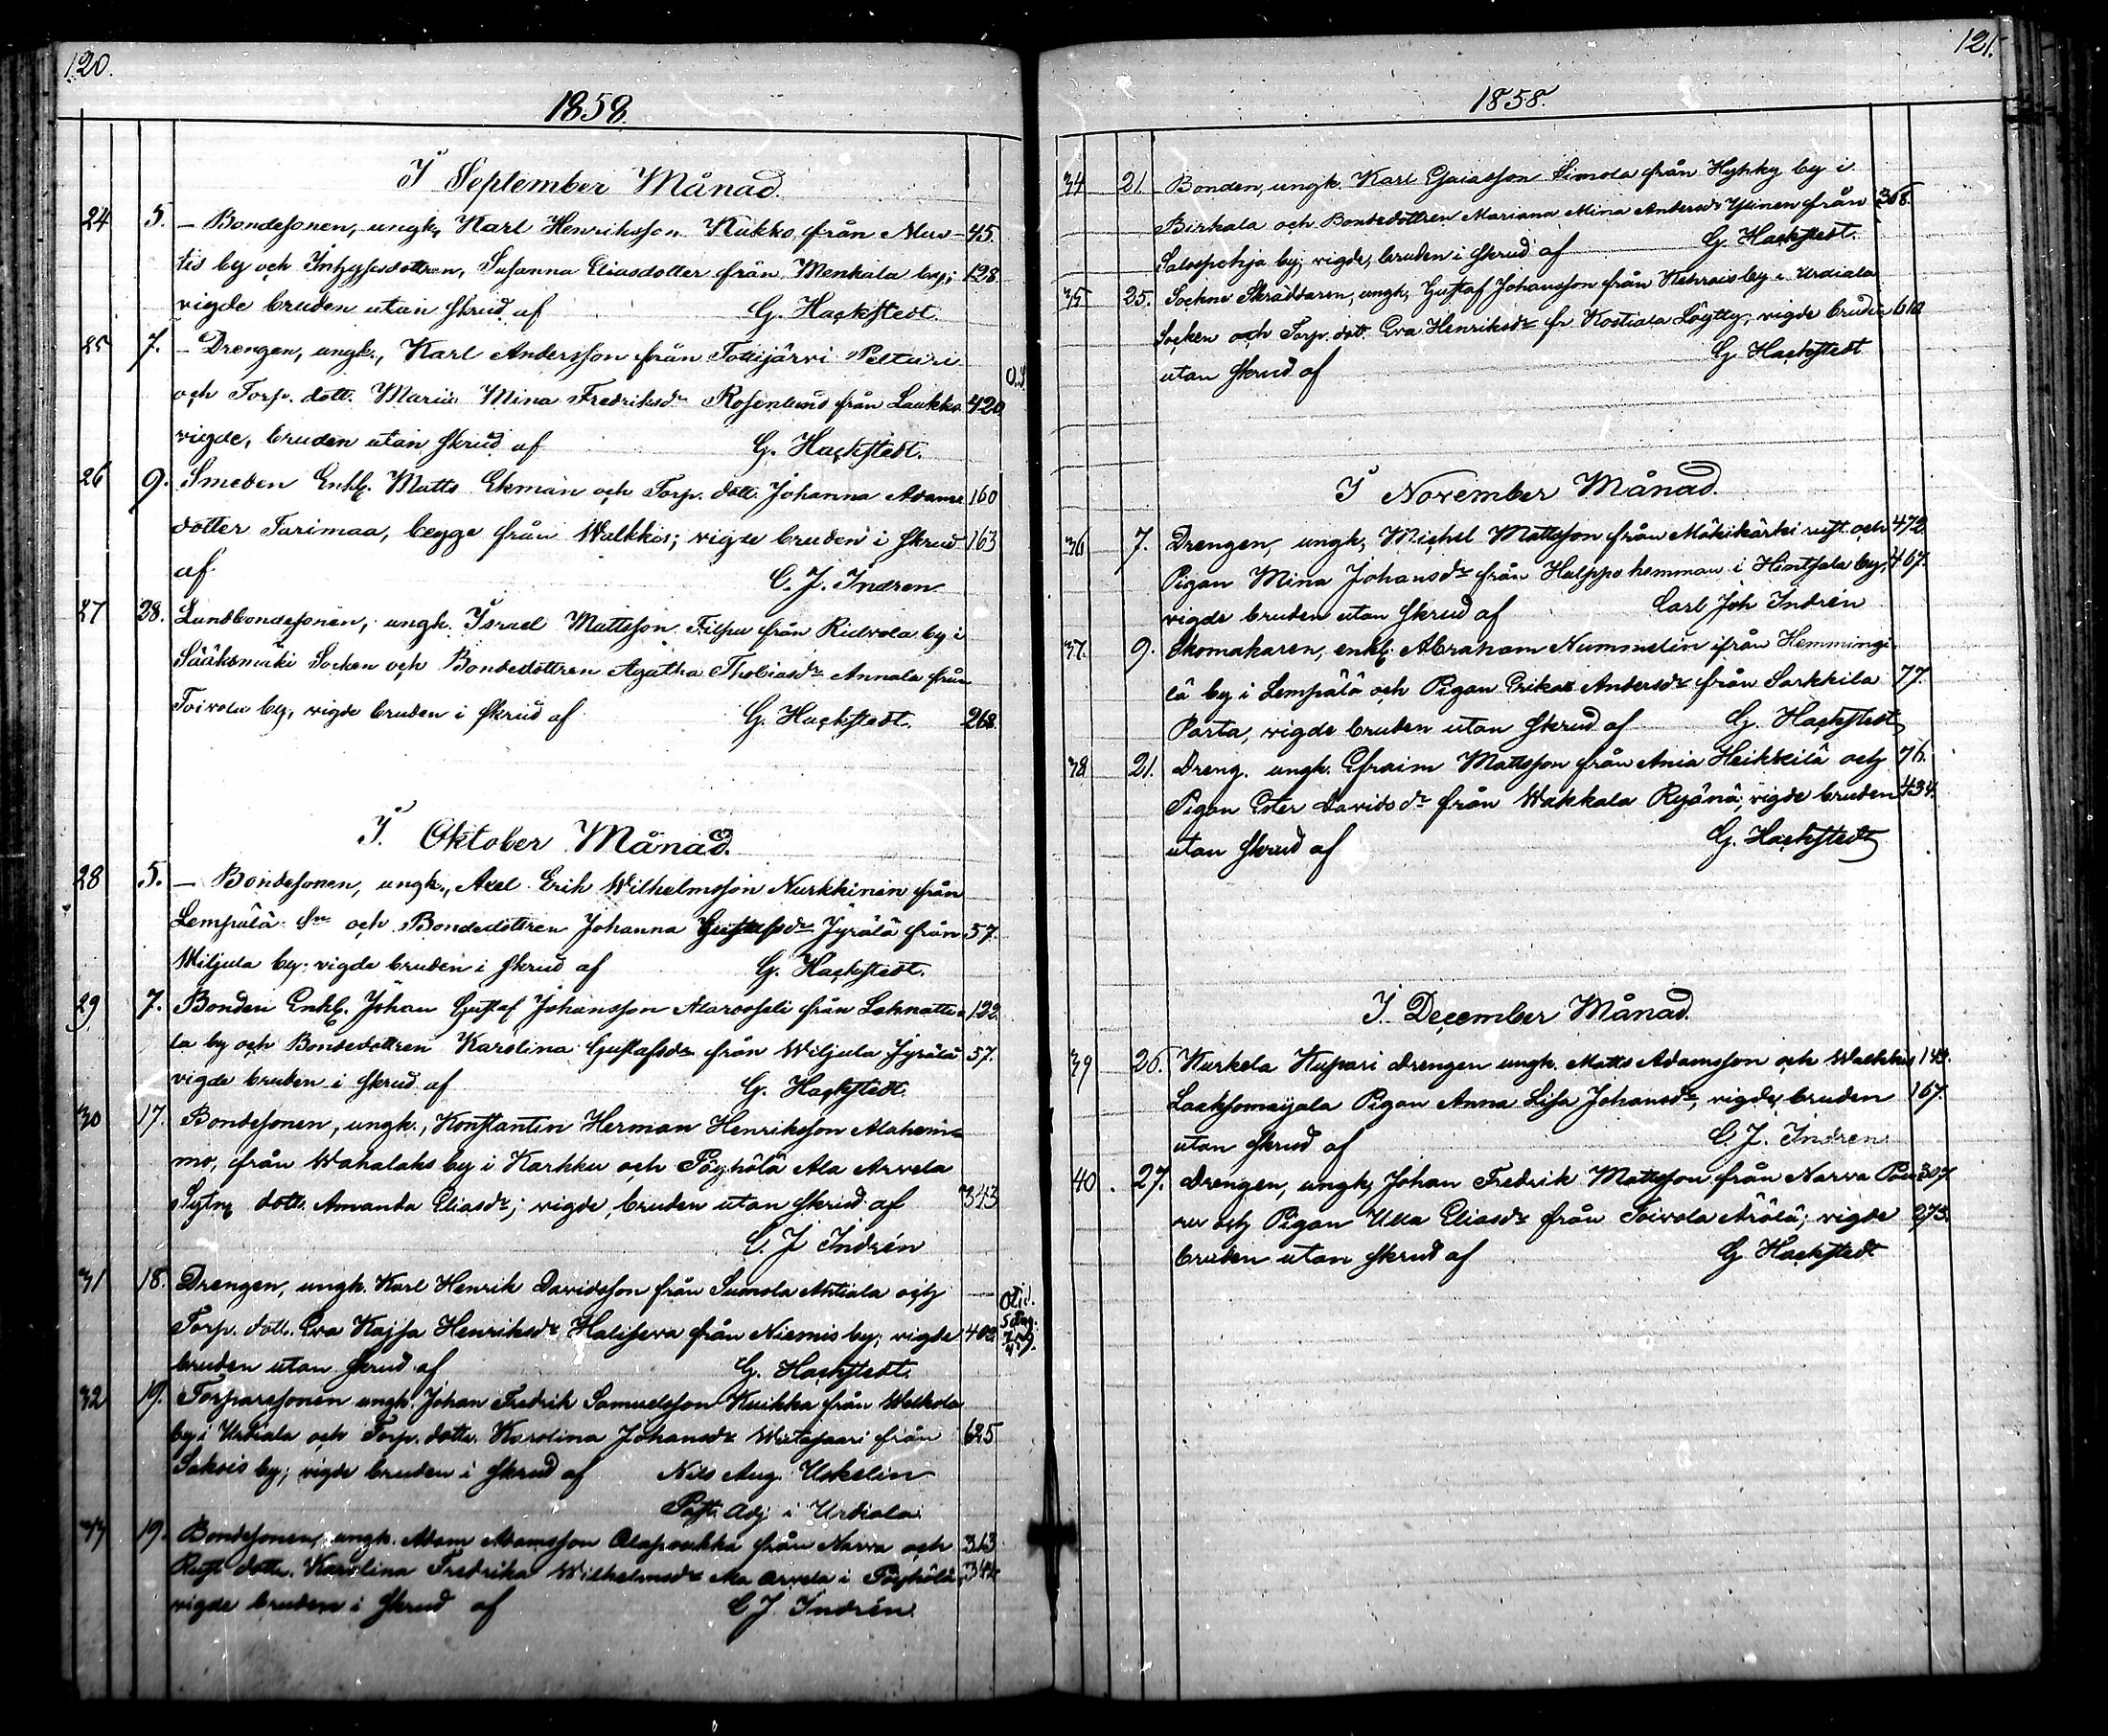 120.
1858.
I September Månad.
24 5. – Bondesonen, ungk., Karl Henriksson Kukko från Alus- 45.
tis by och Inhysesdottren, Susanna Eliasdotter från Menkala by; 128.
vigde bruden utan skrud af G. Hackstedt.
25 7. – Drengen, ungk., Karl Andersson från Tottijärvi Pelturi
och Torp. dott. Maria Mina Fredriksdr Rosenlund från Laukko 420
vigde, bruden utan skrud af G. Hackstedt.
26 9. Smeden Enkl. Matts Ekman och Torp. dott. Johanna Adams 160
dotter Tarimaa, begge från Walkkis; vigde bruden i skrud 163
af C. J. Indren
27 28. Landbondesonen, ungk. Israel Mattsson Filpu från Ridvola by i
Sääksmäki Socken och Bondedottren Agatha Thobiasdr Annala från
Toivola by, vigde bruden i skrud af G. Hackstedt. 268.
I Oktober Månad.
28 5. – Bondesonen, ungk., Axel Erik Wilhelmsson Nurkkinen från
Lempälä Sn och Bondedottren Johanna Gustafsdr Jyrälä från 57.
Wiljula by; vigde bruden i skrud af G. Hackstedt.
29 7. Bonden Enkl. Johan Gustaf Johansson Alarosseli från Lahnatti- 122.
la by och Bondedottren Karolina Gustafsdr från Wiljula Jyrälä 57.
vigde bruden i skrud af G. Hackstedt.
30 17. Bondesonen, ungk., Konstantin Herman Henriksson Alahemi-
mo, från Wahalaks by i Karkku och Pöyhölä Ala Arvela
dott. Amanda Eliasdr; vigde, bruden utan skrud af 343
C. J Indrén
31 18. Drengen, ungk. Karl Henrik Davidsson från Sumola Ahtiala och
Torp. dott. Eva Kajsa Henriksdr Halisewa från Niemis by; vigde 402
bruden utan skrud af G. Hackstedt.
32 19. Torparesonen ungk. Johan Fredrik Samuelsson Kuikka från Walkola
by i Urdiala och Torp. dottr. Karolina Johansdr Wirtasaari från 625
Saksis by; vigde bruden i skrud af Nils Aug. Uskelin
Past. Adj. i Urdiala.
33 19. Bondesonen, ungk. Adam Adamsson Alapoukka från Narva och 313
Rust dottr. Karolina Fredrika Wilhelmsdr Ala Arvela i Pöyhölä 344
vigde bruden i skrud af C J. Indrén
121.
1858.
34 21 Bonden, ungk. Karl Esaiasson Simola från Hyhky by i
Birkala och Bondedottren Mariana Mina Andersdr Ylinen från 368.
Salospohja by; vigde, bruden i skrud af G. Hackstedt.
35 25. Sockne Skräddaren, ungk, Gustaf Johansson från Kehrois by i Urdiala
Socken och Torp. dott. Eva Henriksdr fr Kostiala Löytty, vigde bruden 610
utan skrud af G. Hackstedt
I November Månad.
36 7. Drengen, ungk, Michel Mattsson från Mäkikärki rust. och 472
Pigan Mina Johansdr från Hulppo hemman i Hintsala by; 467.
vigde bruden utan skrud af Carl Joh Indrén
37. 9. Skomakaren, enkl. Abraham Nummelin från Hemmingi-
lä by i Lempälä och Pigan Erika Andersdr från Sarkkila 77.
Parta, vigde bruden utan skrud af G. Hackstedt
38 21. Dreng. ungk. Efraim Mattsson från Ania Heikkilä och 76.
Pigan Ester Davidsdr från Wakkala Ryänä, vigde bruden 434.
utan skrud af G. Hackstedt
I December Månad.
39 26. Kurkela Kupari drengen ungk. Matts Adamsson och Walkkis
Laaksomaijala Pigan Anna Lisa Johansdr, vigde, bruden 167.
utan skrud af C J. Indren
40. 27. Drengen, ungk, Johan Fredrik Mattsson från Narva 307.
och Pigan Ulla Eliasdr från Toivola Arölä; vigde 275.
bruden utan skrud af G Hackstedt